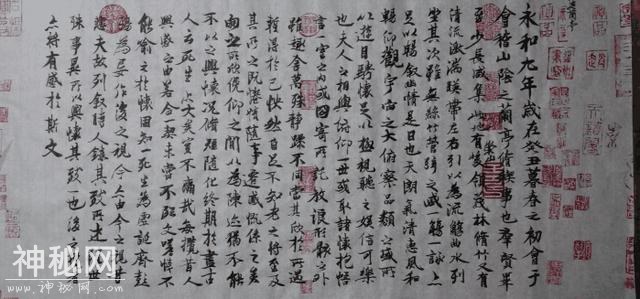 永和九年歲在癸丑暮春之初會于
會稽山陰之蘭亭脩稧事也羣賢畢
至少長咸集此地有崇山峻領茂林脩竹又有
清流激湍暎帶左右引以為流觴曲水列
坐其次雖無絲竹管絃之盛一觴一詠亦
足以暢敘幽情是日也天朗氣清惠風和
暢仰觀宇宙之大俯察品類之盛所
以遊目騁懷足以極視聽之娛信可樂
也夫人之相與俯仰一世或取諸懷抱悟
言一室之內或因寄所託放浪形骸之外
雖趣舍萬殊靜躁不同當其欣於所遇
暫得於己怏然自足不知老之將至及
其所之既惓情隨事遷感慨係之矣
向之所欣俛仰之間以為陳迹猶不能
不以之興懷況脩短隨化終期於盡古
人云死生亦大矣豈不痛哉每攬昔人
興感之由若合一契未嘗不臨文嗟悼不
能喻之於懷固知一死生為虛誕齊彭
殤為妄作後之視今亦由今之視昔
悲夫故列敘時人錄其所述雖世
殊事異所以興懷其致一也後之
亦將有感於斯文
神秘网
www.shenmiwang.com